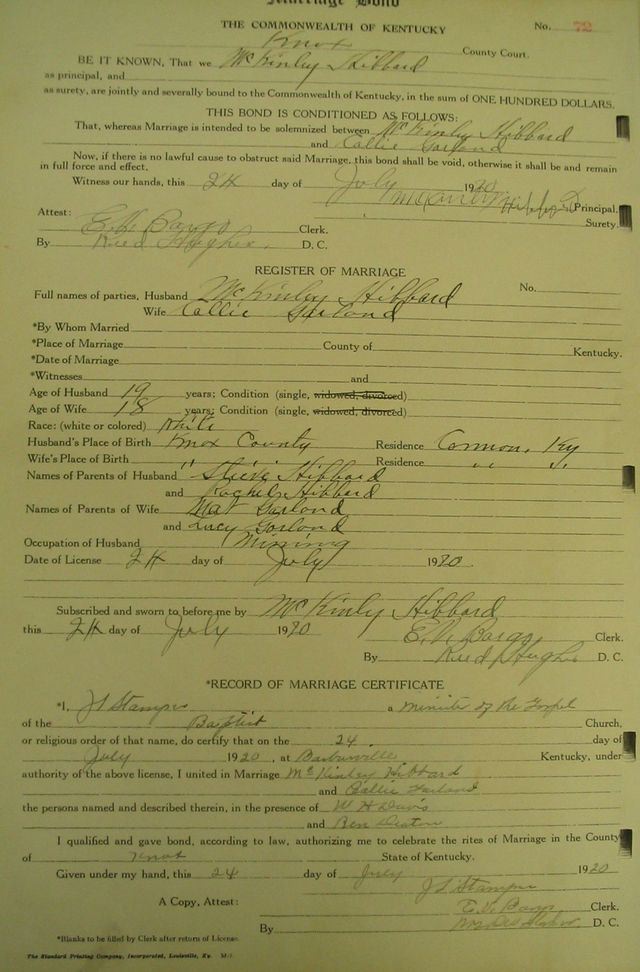 Marriage Bond
THE COMMONWEALTH OF KENTUCKY No. 72
Knox County Court.
BE IT KNOWN, That we McKinley Hibbard
as principal, and
as surety, are jointly and severally bound to the Commonwealth of Kentucky, in the sum of ONE HUNDRED DOLLARS.
THIS BOND IS CONDITIONED AS FOLLOWS:
That, whereas Marriage is intended to be solemnized between McKinley Hibbard
and Callie Garland
Now, if there is no lawful cause to obstruct said Marriage, this bond shall be void, otherwise it shall be and remain
in full force and effect.
Witness our hands, this 24 day of July 1920
Principal.
Surety.
Attest:
Clerk.
By Reed Hughes. D. C.
REGISTER OF MARRIAGE
Full names of parties, Husband McKinley Hibbard No.
Wife Callie Garland
*By Whom Married
*Place of Marriage County of Kentucky.
*Date of Marriage
*Witnesses and
Age of Husband 19 years; Condition (single, widowed, divorced)
Age of Wife 18 years; Condition (single, widowed, divorced)
Race: (white or colored) White
Husband's Place of Birth Knox County Residence Cannon, Ky
Wife's Place of Birth " Residence " "
Names of Parents of Husband Steve Hibbard
and Rachel Hibbard
Names of Parents of Wife Mat Garland
and Lucy Garland
Occupation of Husband Mining
Date of License 24 day of July 1920
Subscribed and sworn to before me by McKinly Hibbard
this 24 day of July 1920
Clerk.
By Reed Hughes D. C.
*RECORD OF MARRIAGE CERTIFICATE
*I, J L Stamper a minister of the Gospel
of the Baptist Church,
or religious order of that name, do certify that on the 24 day of
July 1920, at Barbourville Kentucky, under
authority of the above license, I united in Marriage McKinley Hibbard
and Callie Garland
the persons named and described therein, in the presence of W H Davis
and Ben Deaton
I qualified and gave bond, according to law, authorizing me to celebrate the rites of Marriage in the County
of Knox State of Kentucky.
Given under my hand, this 24 day of July 1920
J L Stamper
A Copy, Attest: Clerk.
By D. C.
*Blanks to be filled by Clerk after return of License.
The Standard Printing Company, Incorporated, Louisville, Ky.